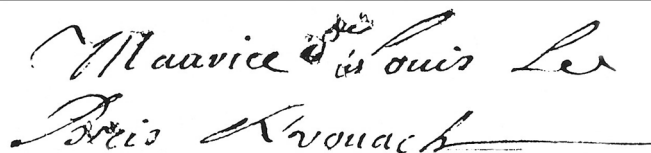 Maurice Louis Le
Brris Krouach